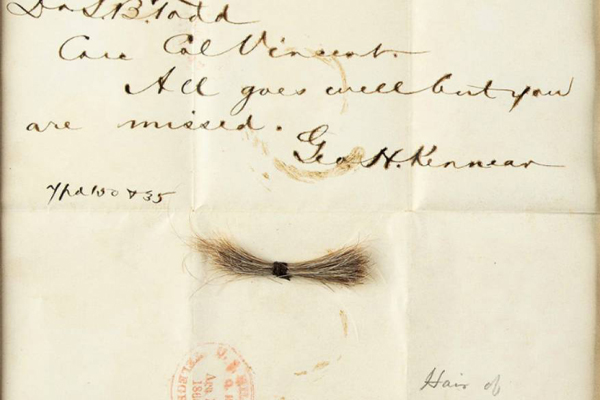 Dr L. B. Todd
Care Col Vincent.
All goes well but you
are missed.
Geo. H. Kinnear
Hair of